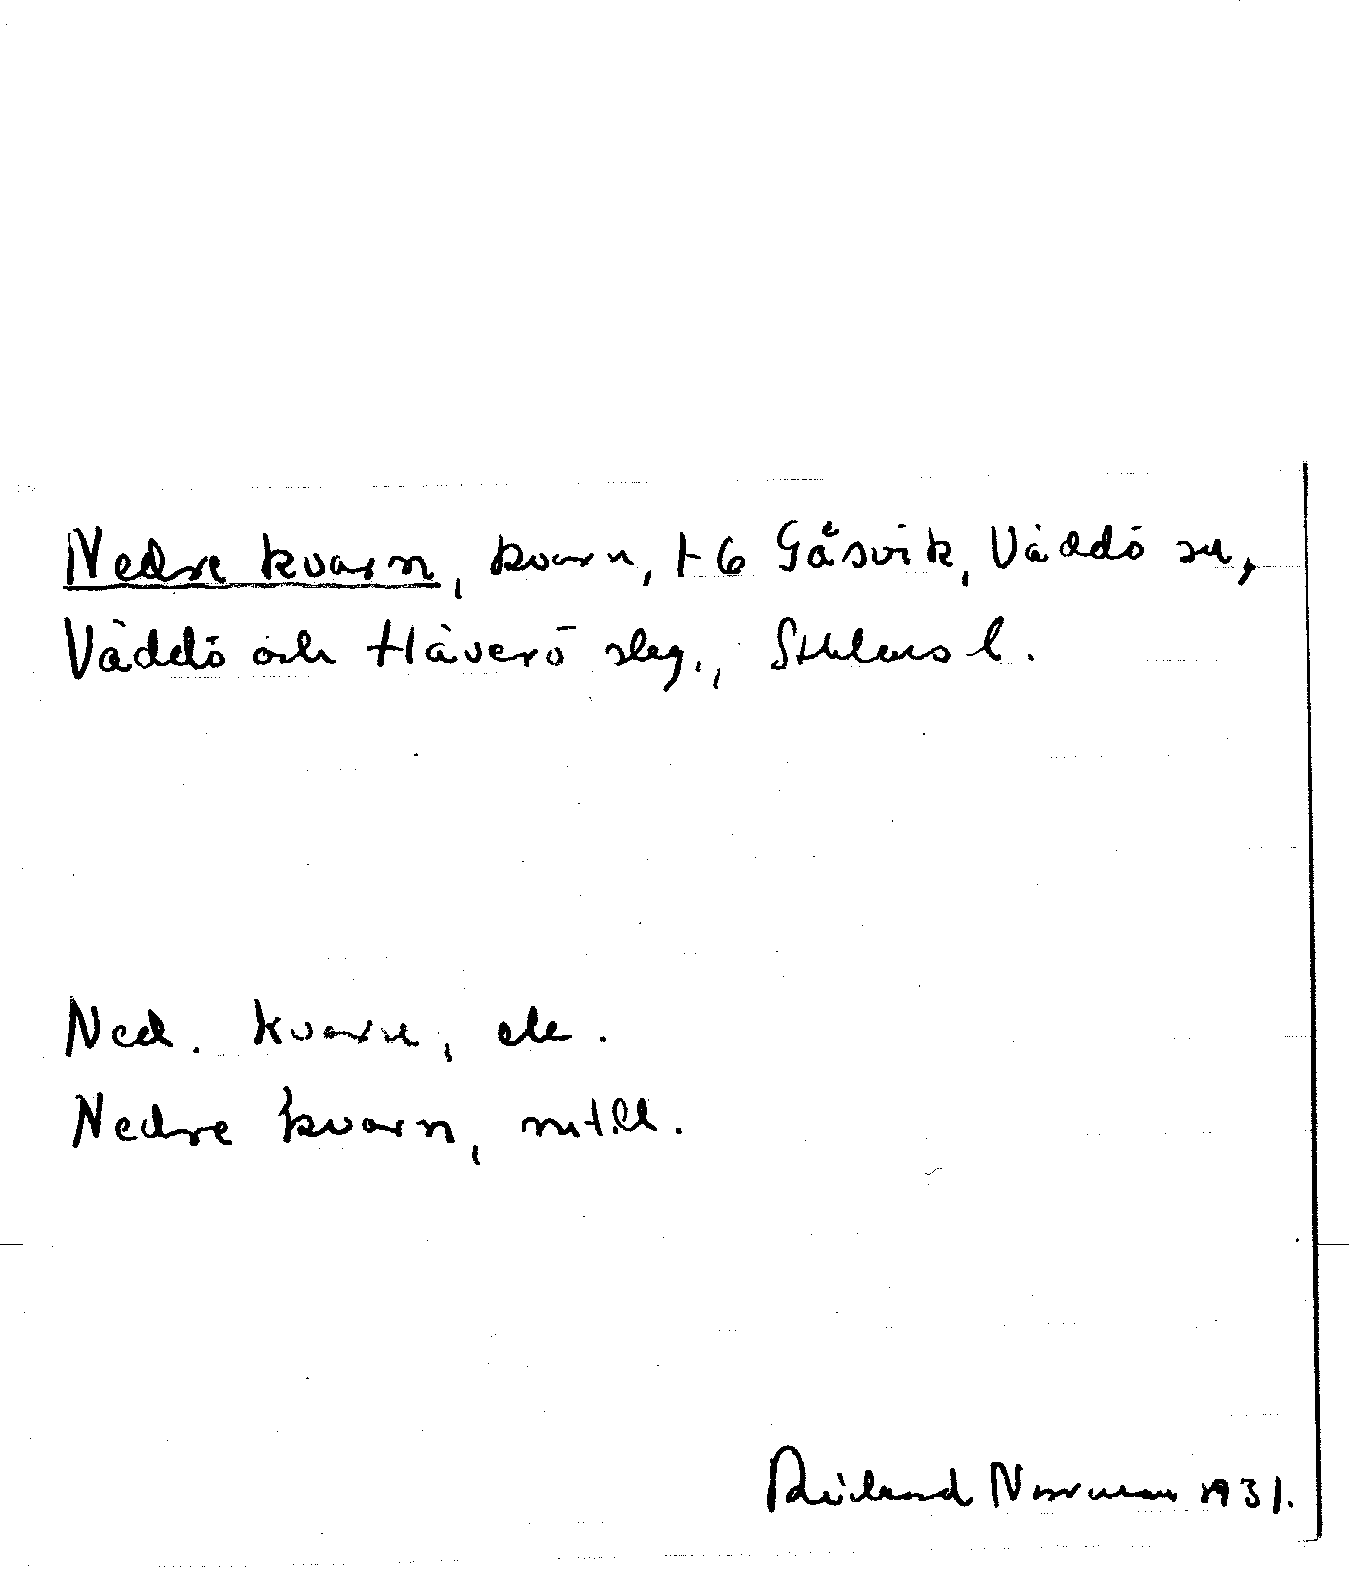 Nedre kvarn, kvarn, t 6 Gåsvik, Väddö sn,
Väddö och Häverö slag., Sthlms l.
Ned. kvarn, ek.
Nedre kvarn, mtlld.
Rickard Norrman 1931.